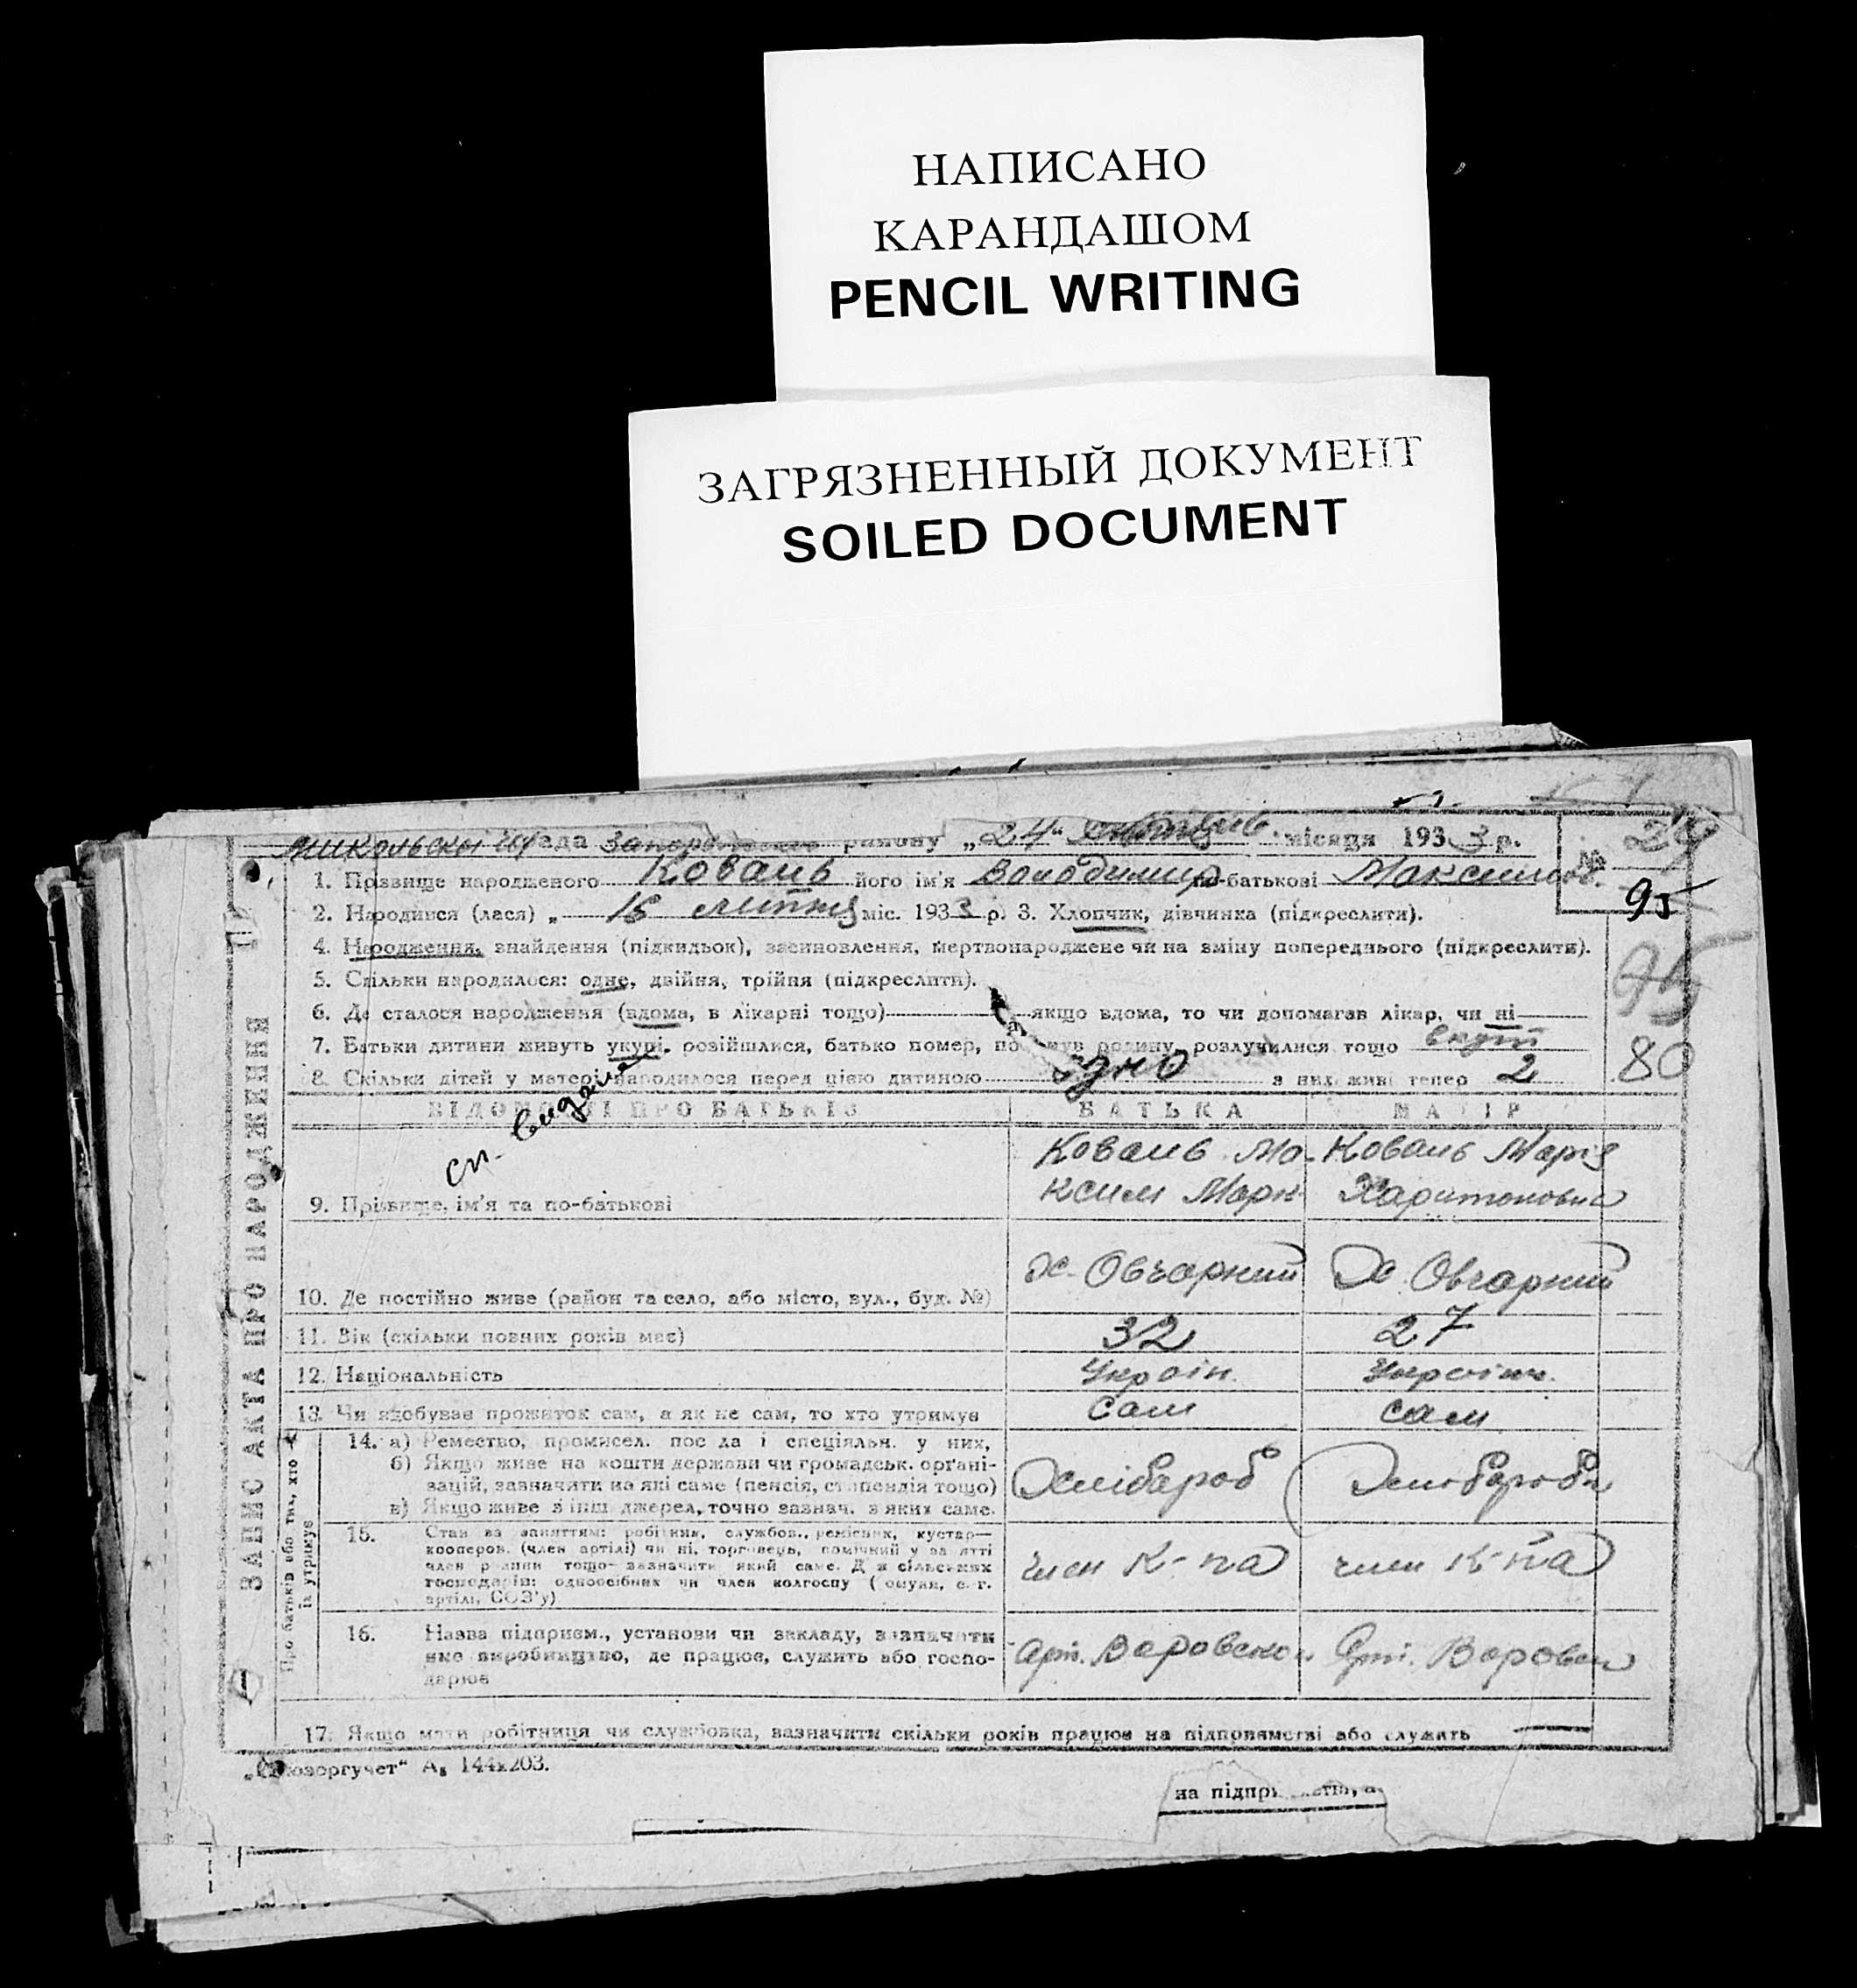 НАПИСАНО
КАРАНДАШОМ
PENCIL WRITING
ЗАГРЯЗНЕННЫЙ ДОКУМЕНТ
SOILED DOCUMENT
рада району „24“ місяця 1933 р.
№ 29
1. Прізвище народженого Коваль його ім'я Володимир по-батькові Максимов.
95
2. Народився (лася) „ 15 липня міс. 1933 р. 3. Хлопчик, дівчинка (підкреслити).
4. Народження, знайдення (підкидьок), засиновлення, мертвонароджене чи на зміну попереднього (підкреслити).
95
5. Скільки народилося: одне, двійня, трійня (підкреслити).
6. Де сталося народження (вдома, в лікарні тощо) якщо вдома, то чи допомагав лікар, чи ні
7. Батьки дитини живуть укупі, розійшлися, батько помер, родину, розлучилися тощо вкупі
80
8. Скільки дітей у матері народилося перед цією дитиною одно з них живі тепер 2
ВІДОМОСТІ ПРО БАТЬКІВ БАТЬКА МАТІР
сп. видана
Коваль Ма- Коваль Марія
ксим Марк Харитоновна
9. Прізвище, ім'я та по-батькові
х. Овчарний Х. Овчарний
10. Де постійно живе (район та село, або місто, вул., буд. №)
11. Вік (скільки повних років має) 32 27
12. Національність Україн. Україн.
13. Чи здобував прожиток сам, а як не сам, то хто утримує сам сам
14. а) Ремество, промисел. посада і спеціяльн. у них,
б) Якщо живе на кошти держави чи громадськ. органі-
зацій, зазначити на які саме (пенсія, стипендія тощо) Хлібороб Хлібороб
в) Якщо живе з інш джерел, точно зазнач. з яких саме.
15. Стан за заняттям: робітник, службов., ремісник, кустар—
кооперов. (член артілі) чи ні, торговець, помічний у занятті
член родини тощо— зазначити який саме. Для сільських
господарів: одноосібник чи член колгоспу (комуни, с. г.
артілі, СОЗ'у)
член К-па член К-па
16. Назва підприєм., установи чи закладу, зазначити
яке виробництво, де працює, служить або госпо-
дарює
Арт. Воровсько Арт. Воровсь
17. Якщо мати робітниця чи службовка, зазначити скільки років працює на підприємстві або служить
ЗАПИС АКТА ПРО НАРОДЖЕННЯ
Про батьків або тих, хто
їх утримує
„Союзоргучет“ А₅ 144х203.
на підпри